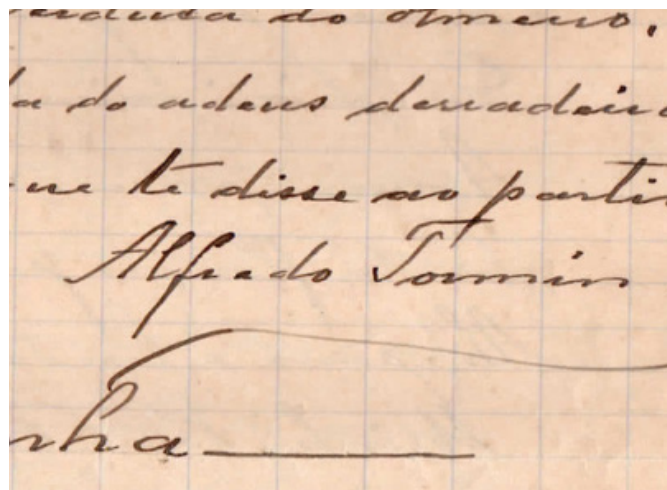 do
da do adeus derradeir
que te disse ao parti
Alfredo Tormin
nha